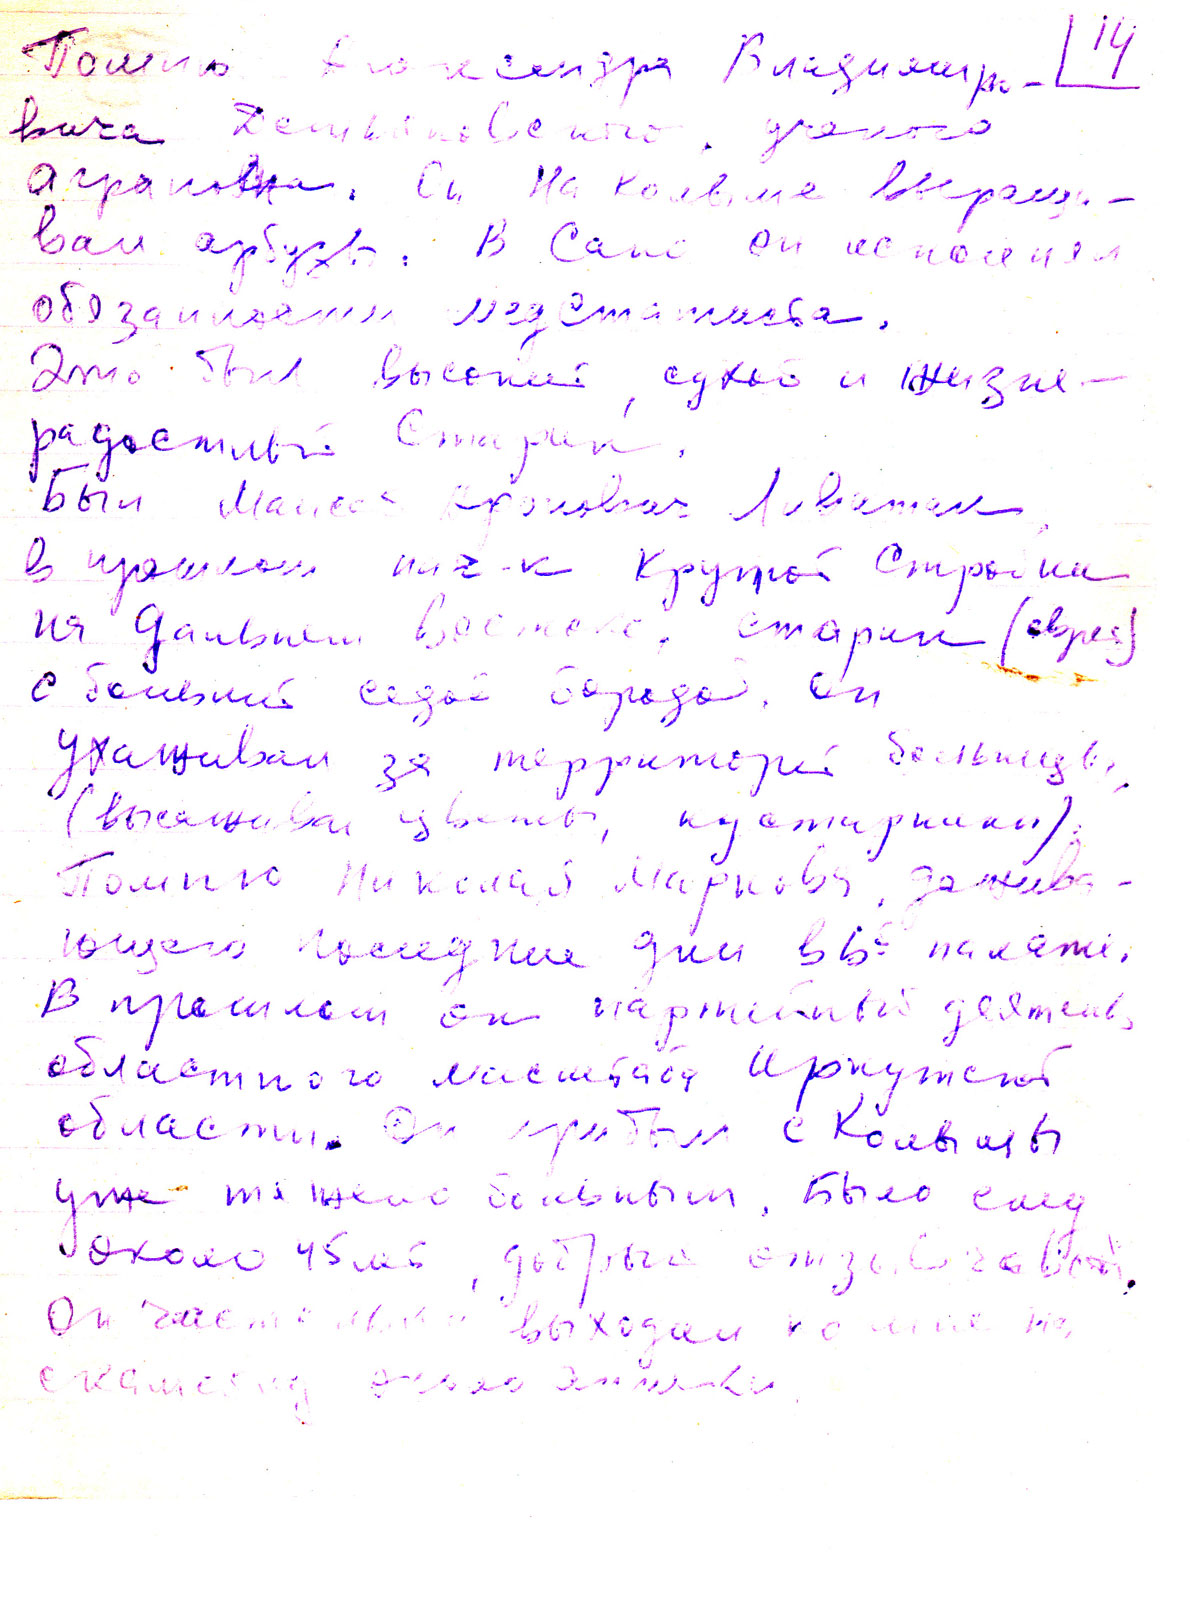 14
Помню Александра Владимиро-
вича ученого
агронома. Он на Колыме выращи-
вал арбузы. В Сано он исполнял
обязанности медстатиста.
Это был высокий, сухой и жизне-
радостный старик.
Был Моисей Аронович
в прошлом нач-к крупной стройки
на Дальнем Востоке, старик (еврей)
с большой седой бородой. Он
ухаживал за территорией больницы,
(высаживал цветы, кустарники).
Помню Николая Маркова, дожива-
ющего последние дни в 6й палате.
В прошлом он партейный деятель
областного масштаба Иркутской
области. Он прибыл с Колымы
уже тяжело больным. Было ему
около 45 лет, добрый отзывчивый.
Он часто выходил ко мне на
скамейку около